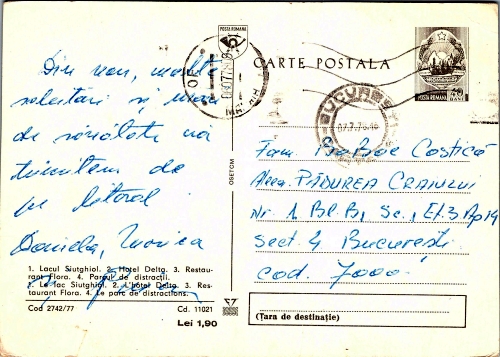 Din nou, multe
salutări și urări
de sănătate vă
trimitem de
pe litoral
Daniela, Monica
1. Lacul Siutghiol. 2. Hotel Delta. 3. Restau-
rant Flora. 4. Parcul de distracții.
1. Le lac Siutghiol. 2. L'hôtel Delta. 3. Res-
taurant Flora. 4. Le parc de distractions.
Cod 2742/77 Cd. 11021
Lei 1,90
POSTA ROMANA
OSETCM
CARTE POSTALA
POSTA ROMANA
40 BANI
BUCURESTI
Fam. Costică
Aleea PĂDUREA CRAIULUI
Nr. 1 Bl. B, Sc. 1 Et. 3 Ap 14
Sect. 4 București
Cod. 7000
(Țara de destinație)